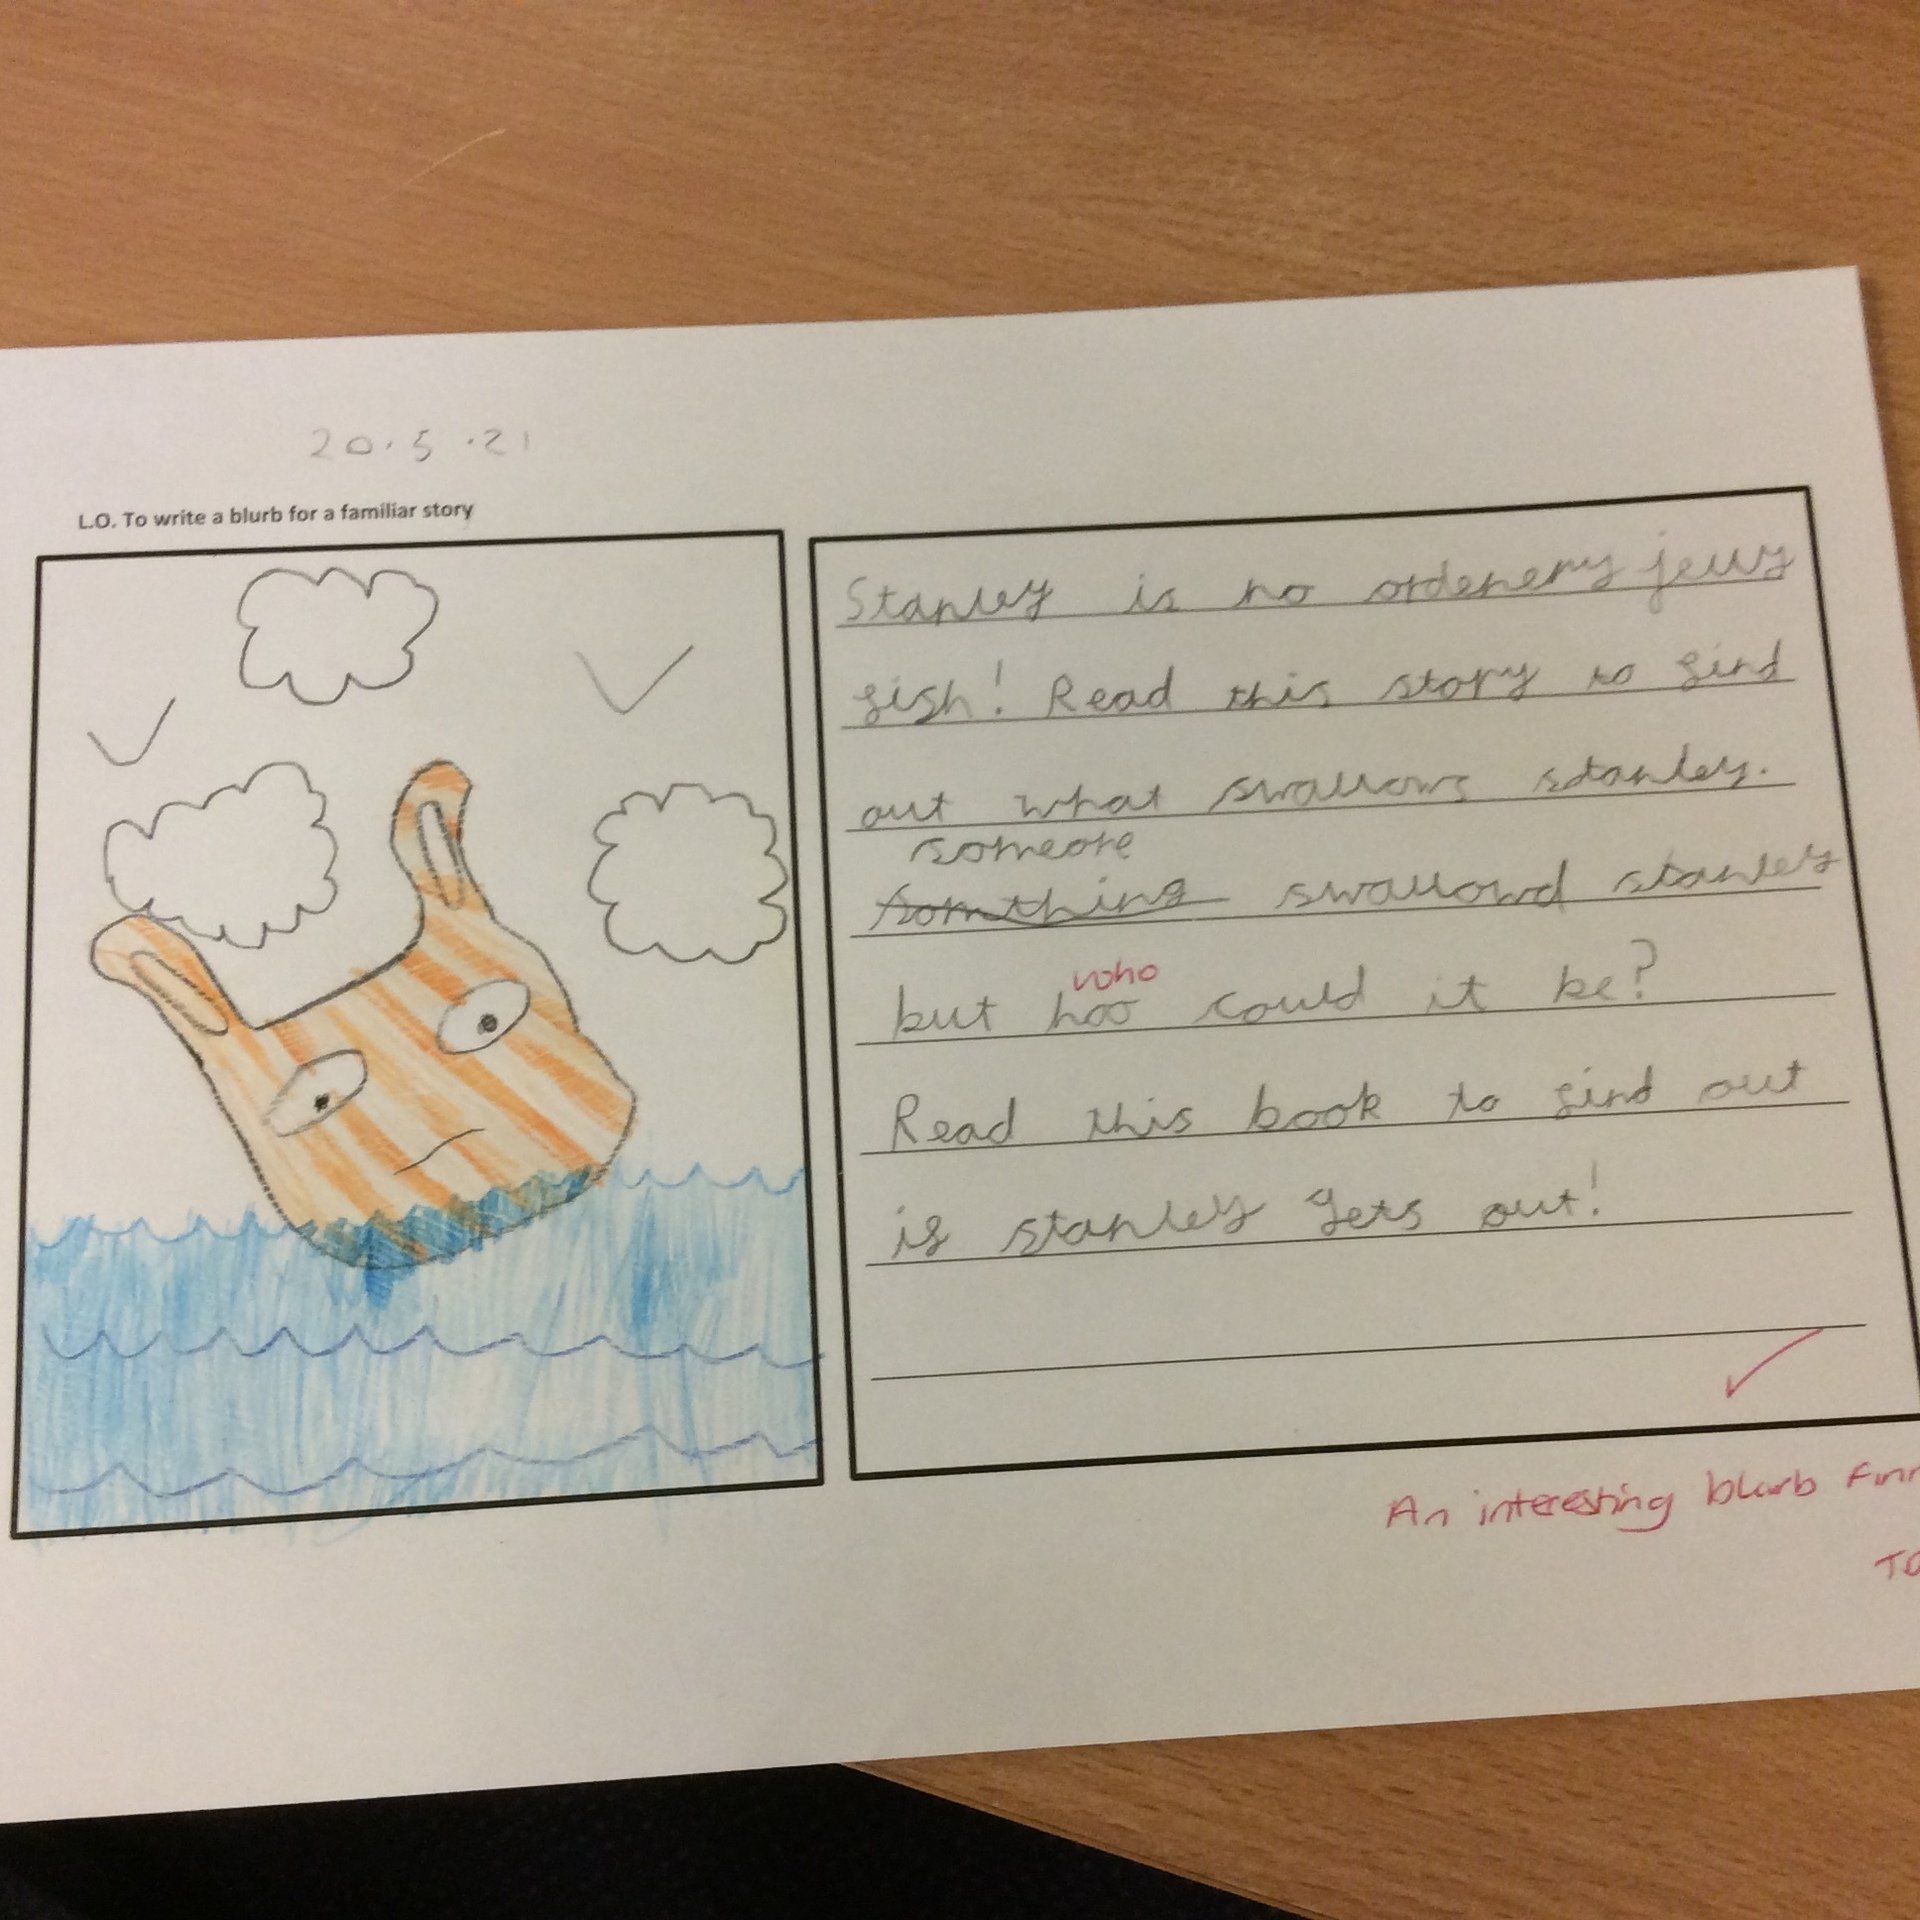 20.5.21
L.O. To write a blurb for a familiar story
Stanley is no ordenery jelly
fish! Read this story to find
out what swallows stanley.
someone
somthing swallowd stanley
who
but hoo could it be?
Read this book to find out
if stanley gets out!
An interesting blurb